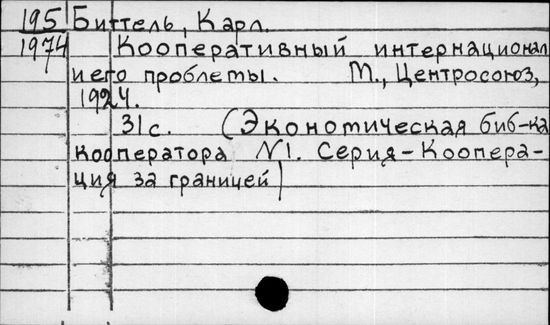 195 Биттель, Карл.
1974 Кооперативный интернационал
и его проблемы. М., Центросоюз,
1924.
31с. (Экономическая биб-ка
кооператора №1. Серия-Коопера-
ция за границей)